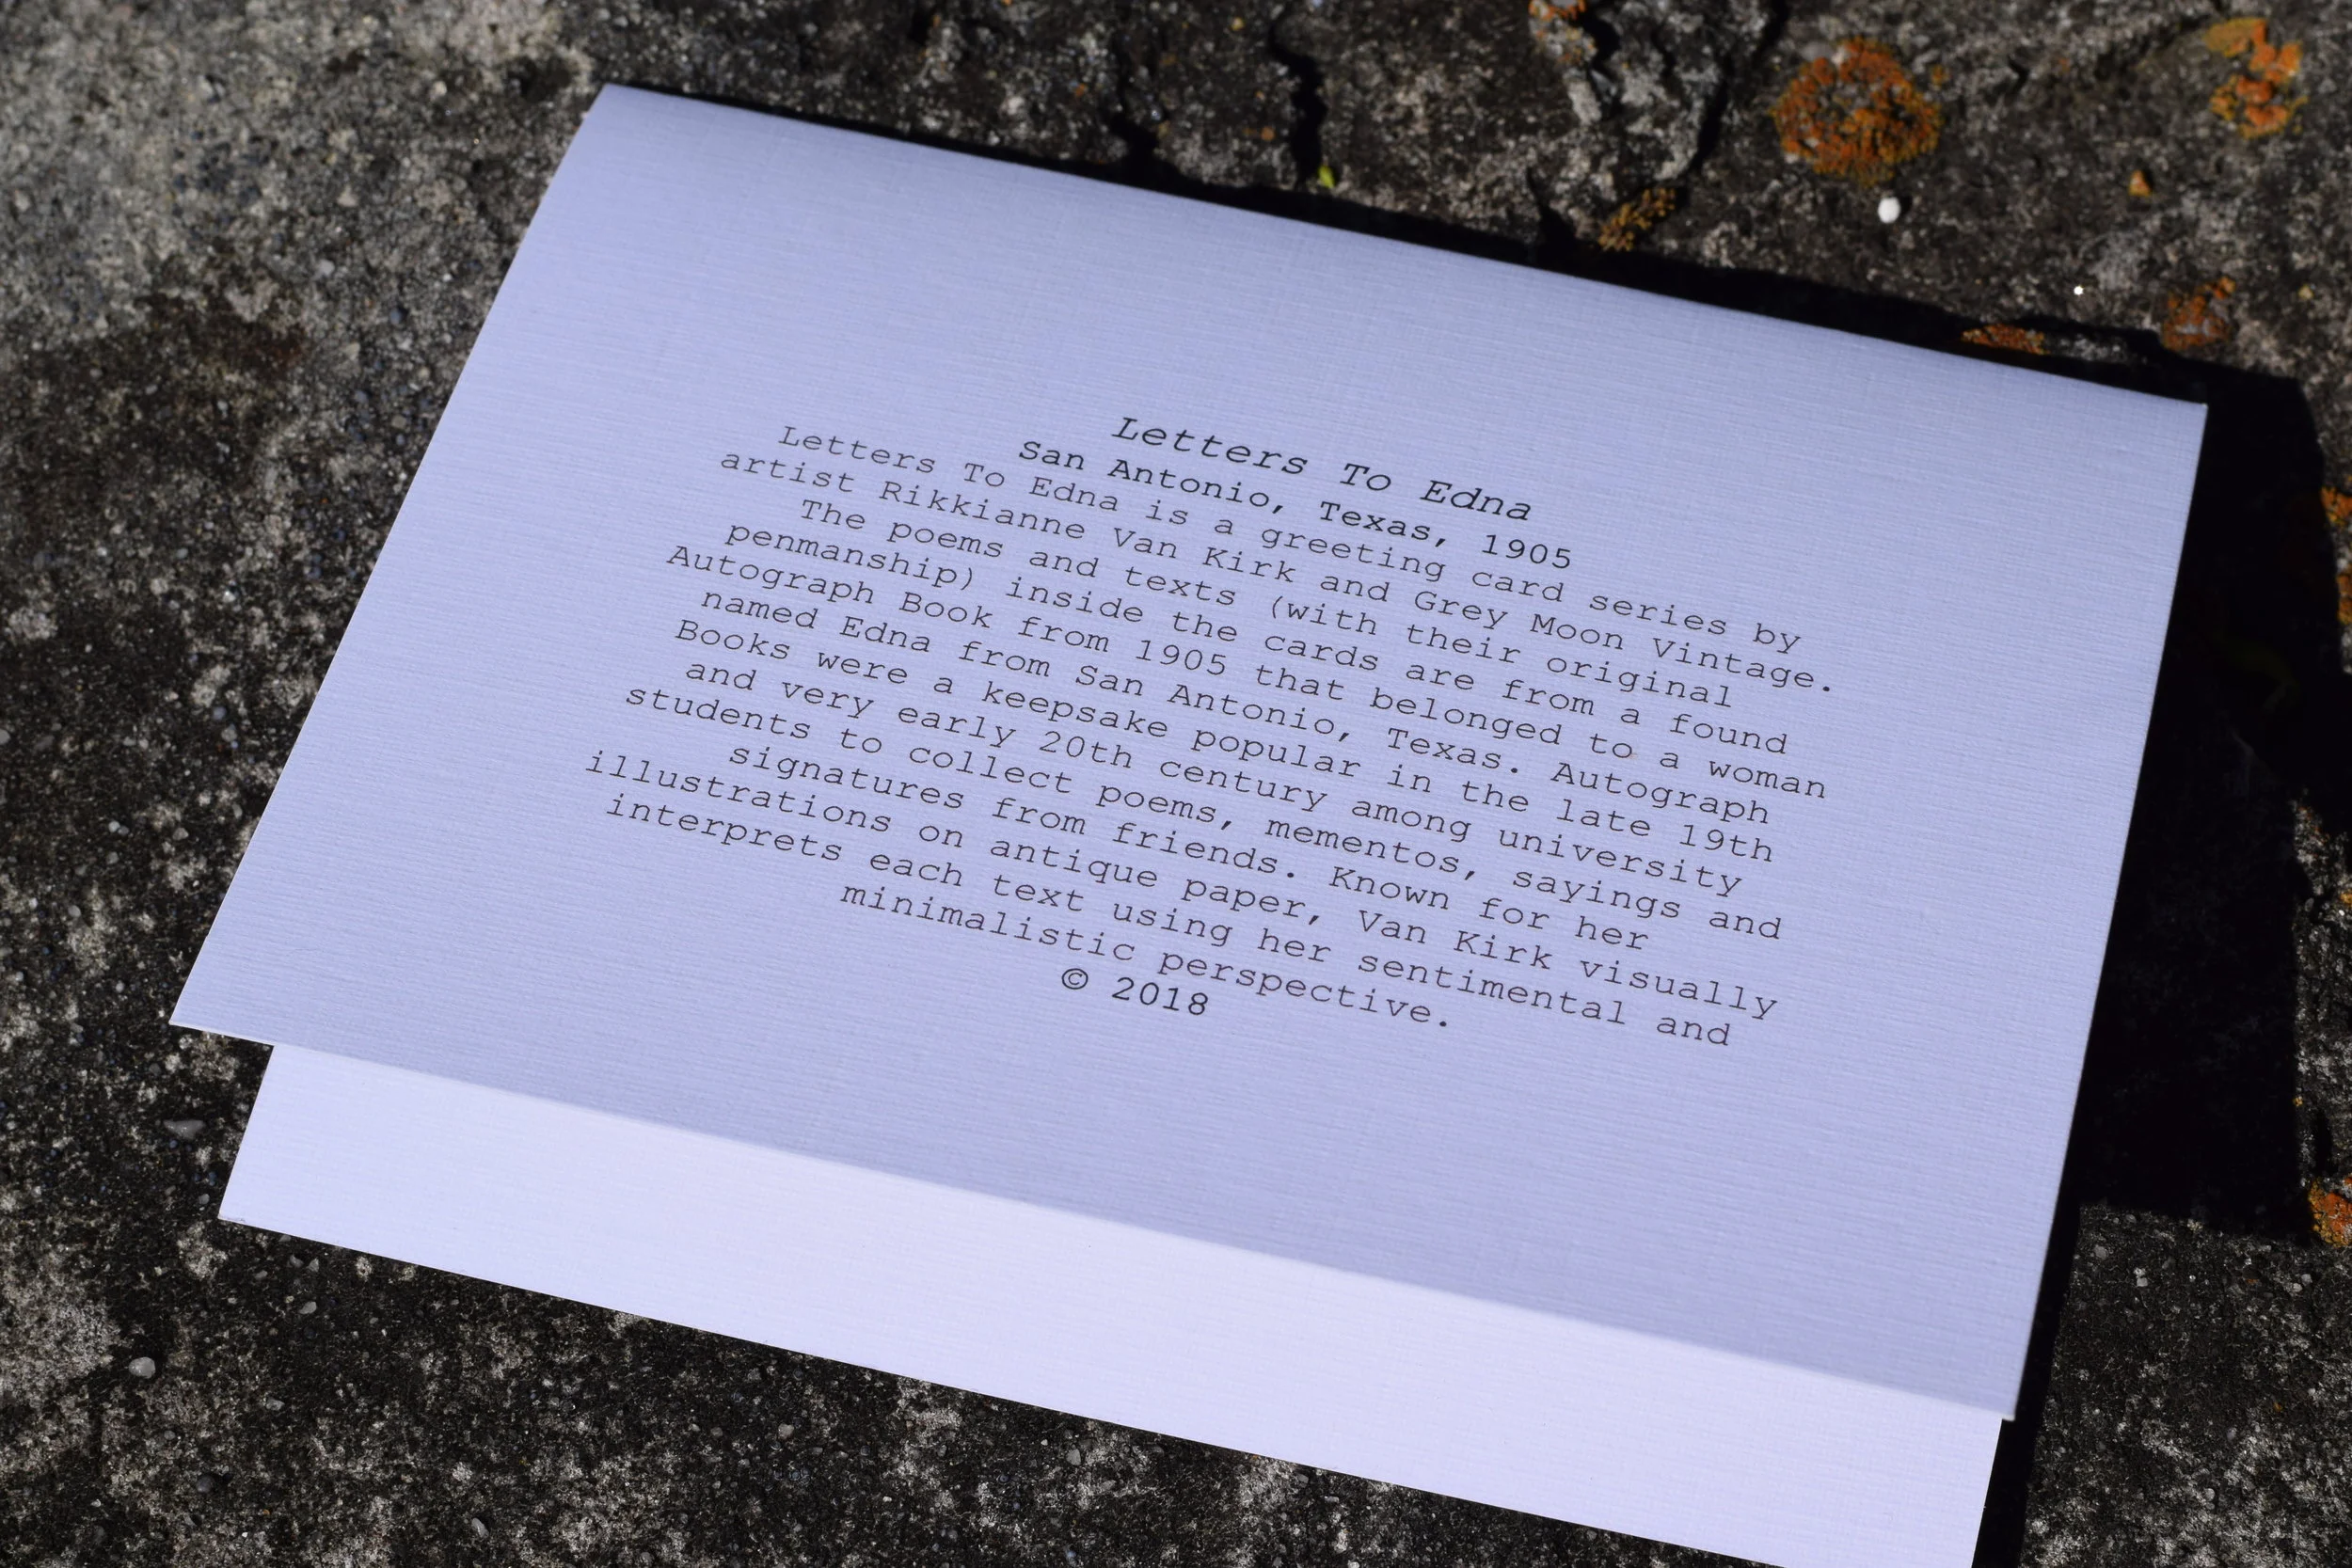 Letters To Edna
San Antonio, Texas, 1905
Letters To Edna is a greeting card series by
artist Rikkianne Van Kirk and Grey Moon Vintage.
The poems and texts (with their original
penmanship) inside the cards are from a found
Autograph Book from 1905 that belonged to a woman
named Edna from San Antonio, Texas. Autograph
Books were a keepsake popular in the late 19th
and very early 20th century among university
students to collect poems, mementos, sayings and
signatures from friends. Known for her
illustrations on antique paper, Van Kirk visually
interprets each text using her sentimental and
minimalistic perspective.
© 2018